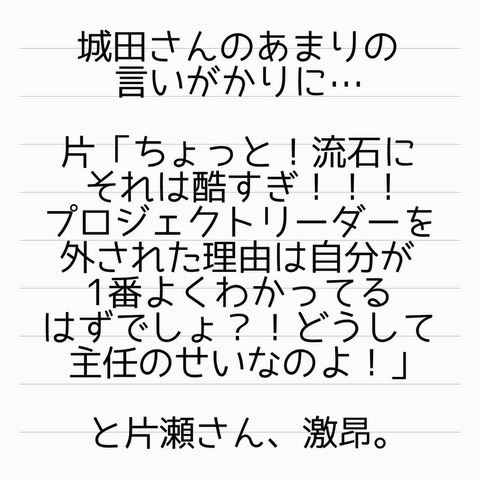 城田さんのあまりの
言いがかりに…
片「ちょっと！流石に
それは酷すぎ！！！
プロジェクトリーダーを
外された理由は自分が
1番よくわかってる
はずでしょ？！どうして
主任のせいなのよ！」
と片瀬さん、激昂。